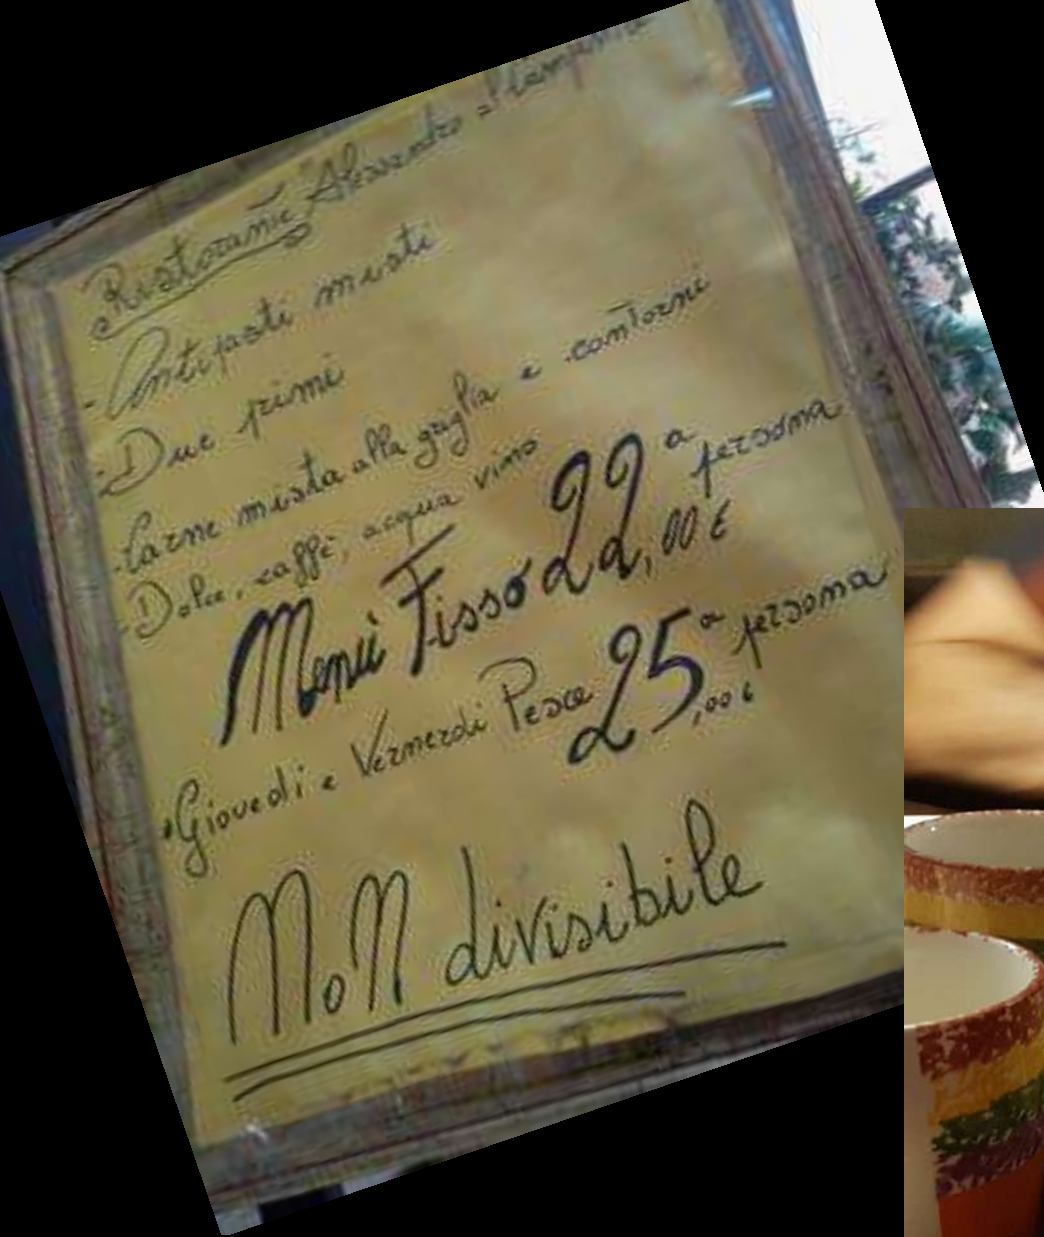 Ristorante Alessandro al tempirio
- Antipasti misti
- Due primi
- Carne mista alla griglia e contorni
- Dolce, caffè, acqua vino
Menù Fisso 22,00 € a persona
• Giovedi e Vernerdi Pesce 25,00 € a persona
NoN divisibile